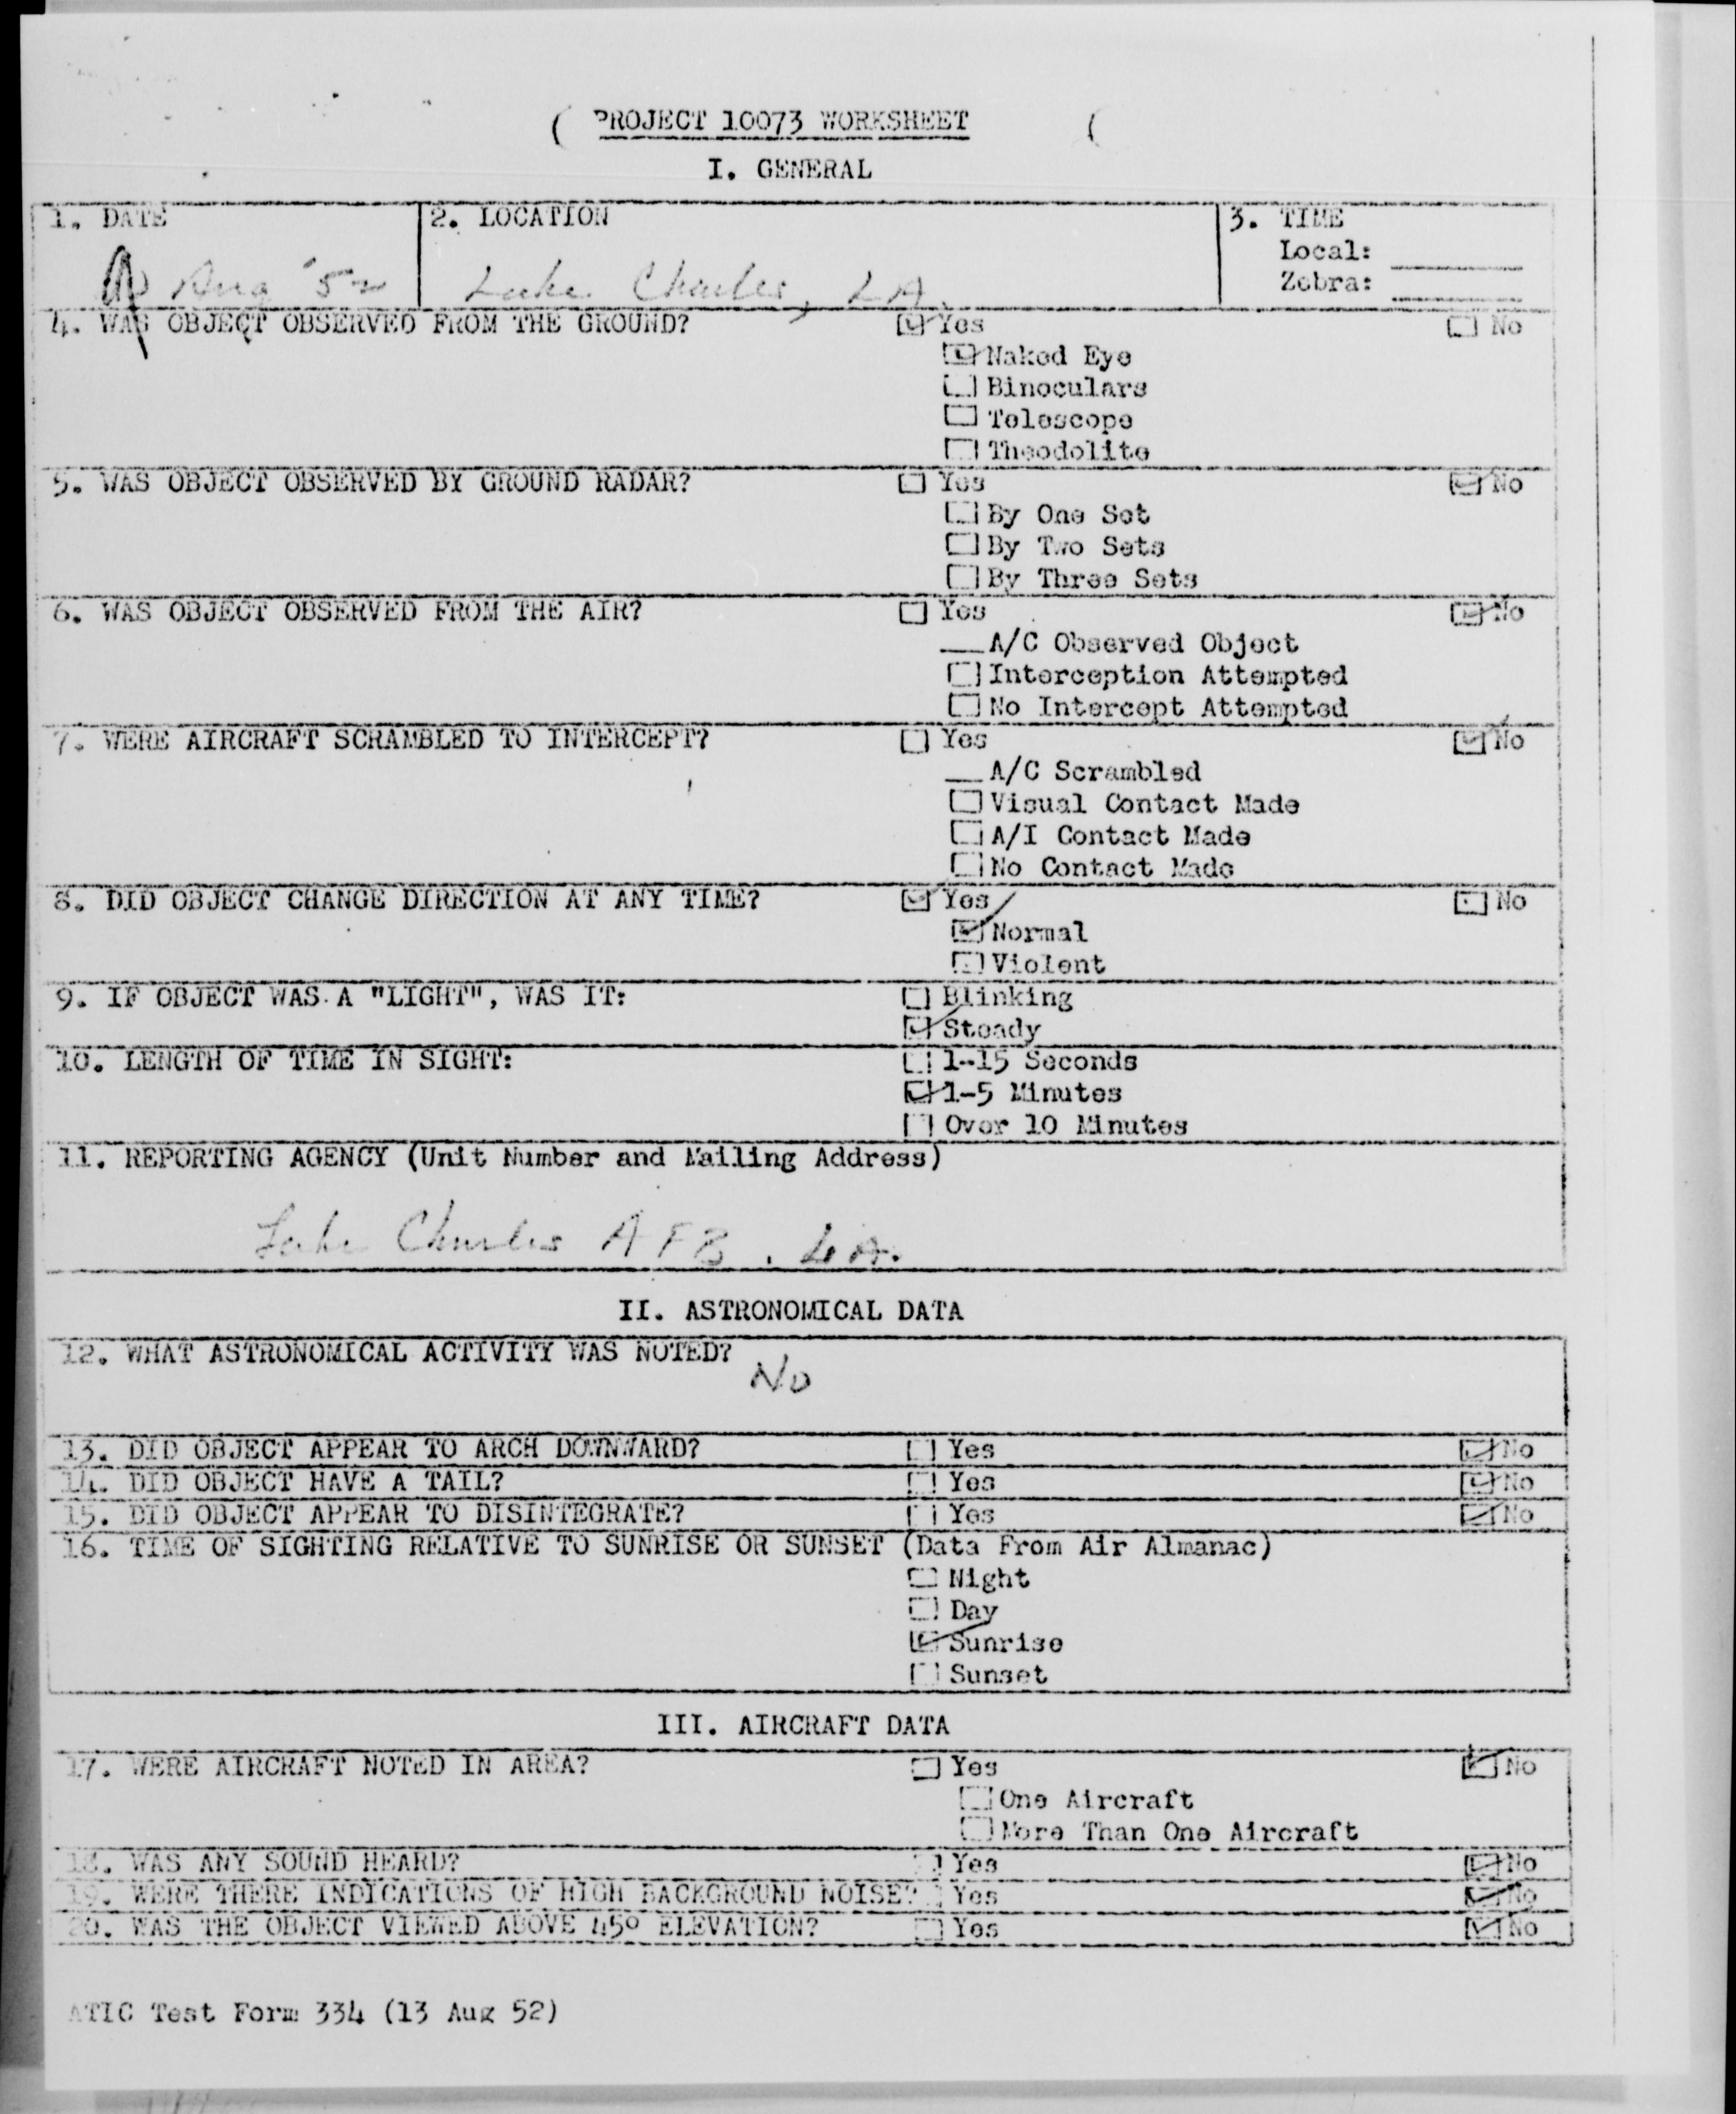 PROJECT 10073 WORKSHEET
I. GENERAL
1. DATE 2. LOCATION 3. TIME
Local:
Aug '52 Lake Charles, LA. Zebra:
4. WAS OBJECT OBSERVED FROM THE GROUND? Yes No
Naked Eye
Binoculars
Telescope
Theodolite
5. WAS OBJECT OBSERVED BY GROUND RADAR? Yes No
By One Set
By Two Sets
By Three Sets
6. WAS OBJECT OBSERVED FROM THE AIR? Yes No
A/C Observed Object
Interception Attempted
No Intercept Attempted
7. WERE AIRCRAFT SCRAMBLED TO INTERCEPT? Yes No
A/C Scrambled
Visual Contact Made
A/I Contact Made
No Contact Made
8. DID OBJECT CHANGE DIRECTION AT ANY TIME? Yes No
Normal
Violent
9. IF OBJECT WAS A "LIGHT", WAS IT: Blinking
Steady
10. LENGTH OF TIME IN SIGHT: 1-15 Seconds
1-5 Minutes
Over 10 Minutes
11. REPORTING AGENCY (Unit Number and Mailing Address)
Lake Charles AFB, LA.
II. ASTRONOMICAL DATA
12. WHAT ASTRONOMICAL ACTIVITY WAS NOTED?
No
13. DID OBJECT APPEAR TO ARCH DOWNWARD? Yes No
14. DID OBJECT HAVE A TAIL? Yes No
15. DID OBJECT APPEAR TO DISINTEGRATE? Yes No
16. TIME OF SIGHTING RELATIVE TO SUNRISE OR SUNSET (Data From Air Almanac)
Night
Day
Sunrise
Sunset
III. AIRCRAFT DATA
17. WERE AIRCRAFT NOTED IN AREA? Yes No
One Aircraft
More Than One Aircraft
18. WAS ANY SOUND HEARD? Yes No
19. WERE THERE INDICATIONS OF HIGH BACKGROUND NOISE? Yes No
20. WAS THE OBJECT VIEWED ABOVE 45° ELEVATION? Yes No
ATIC Test Form 334 (13 Aug 52)